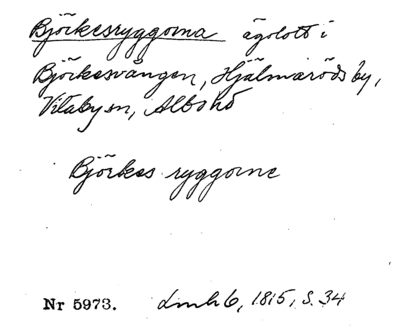 Björkesryggorna ägolott i
Björkesvången, Hjälmaröds by,
Vitaby sn, Albo hd
Björkes ryggorne
Nr 5973. Lmh 6, 1815, S. 34